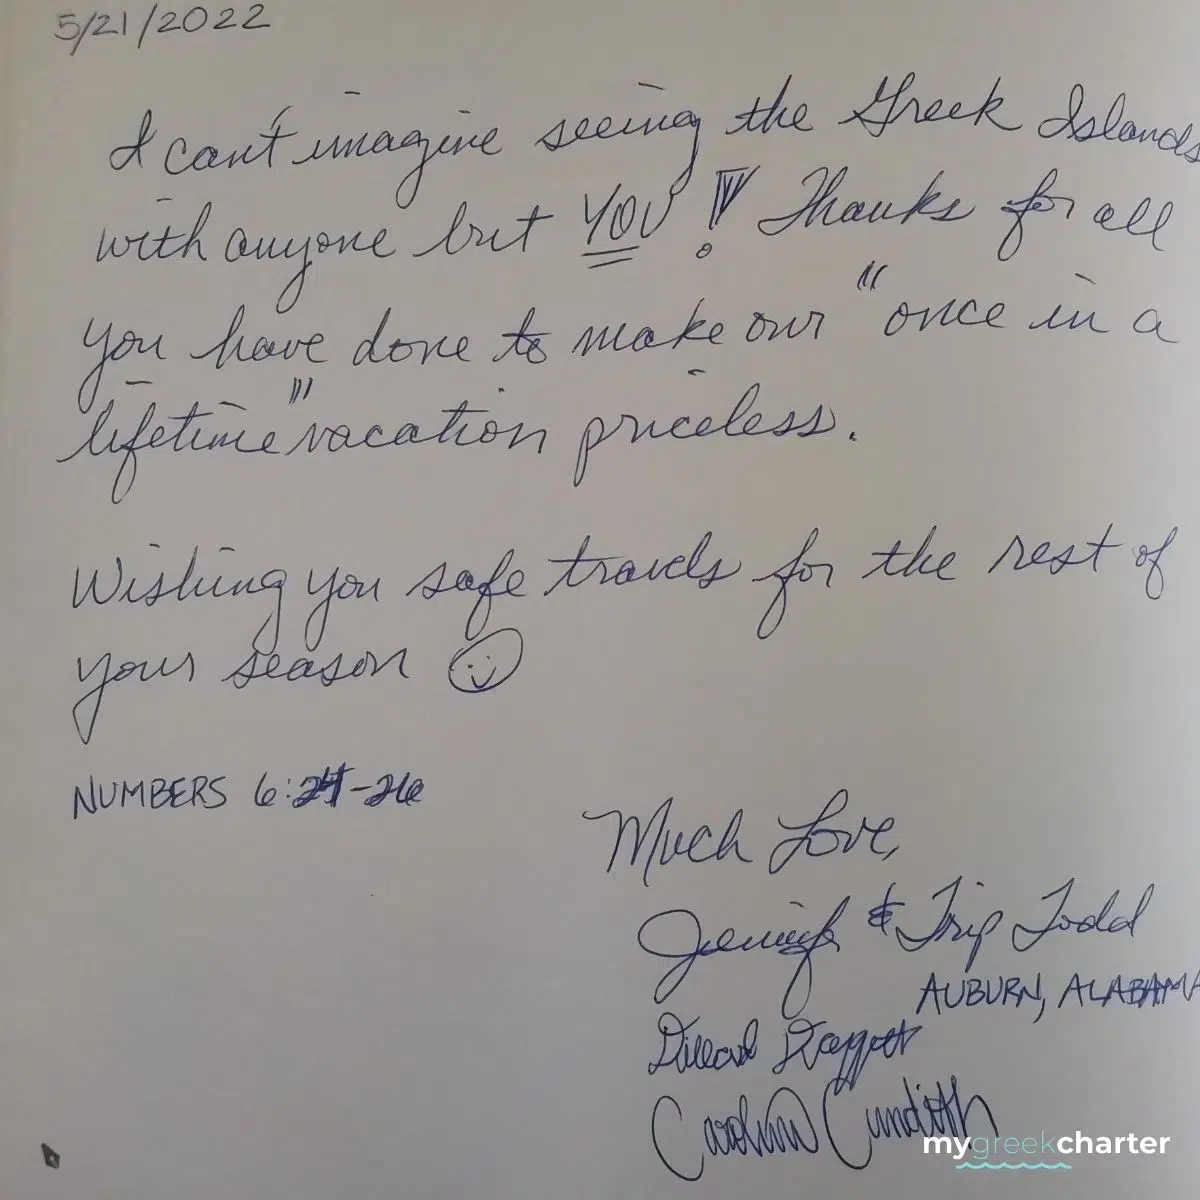 5/21/2022
I can't imagine seeing the Greek Islands
with anyone but YOU! Thanks for all
you have done to make our "once in a
lifetime" vacation priceless.
Wishing you safe travels for the rest of
your season
NUMBERS 6:24-26
Much Love,
Jennifer & Trip Todd
AUBURN, ALABAMA
Dillard Daggett
Carolina Cundith
mygreekcharter